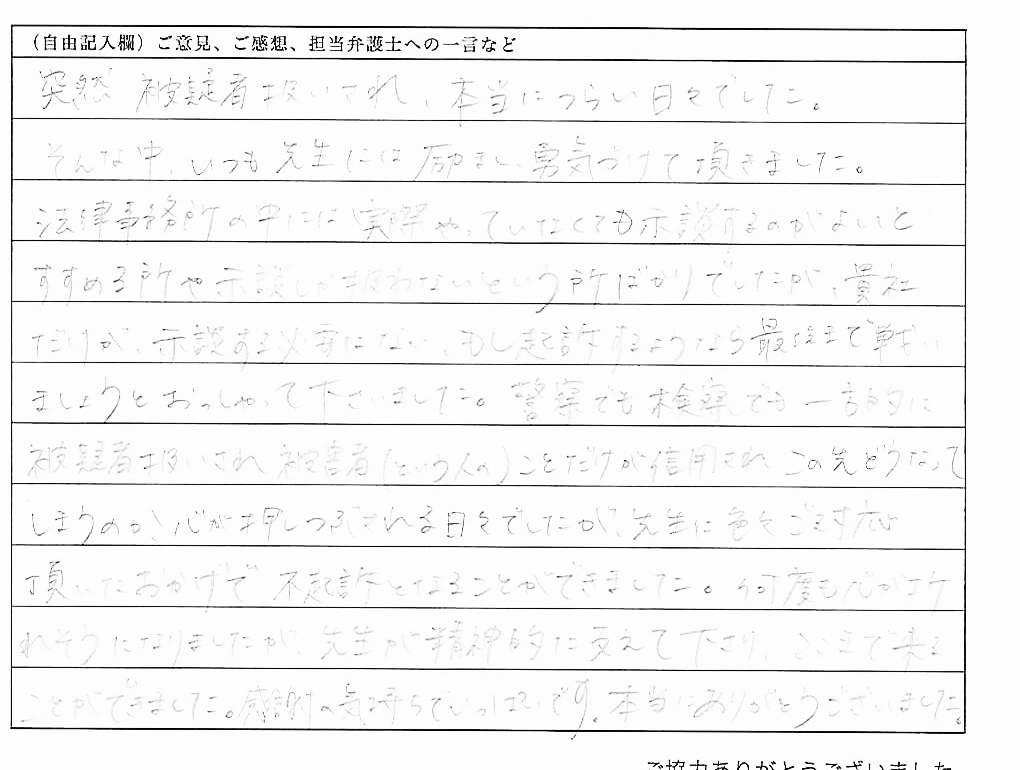 (自由記入欄)ご意見、ご感想、担当弁護士への一言など
突然 被疑者扱いされ、本当につらい日々でした。
そんな中、いつも先生には励まし、勇気づけて頂きました。
法律事務所の中には実際やっていなくても示談するのがよいと
すすめる所や示談しか扱わないという所ばかりでしたが、貴社
だけが、示談する必要はない、もし起訴するようなら最後まで戦い
ましょうとおっしゃって下さいました。警察でも検察でも一方的に
被疑者扱いされ 被害者(という人の)ことだけが信用され この先どうなって
しまうのか、心が押しつぶされる日々でしたが、先生に色々ご対応
頂いたおかげで 不起訴となることができました。何度も心がお
れそうになりましたが、先生が精神的に支えて下さり、ここまで来る
ことができました。感謝の気持ちでいっぱいです。本当にありがとうございました。
ご協力ありがとうございました